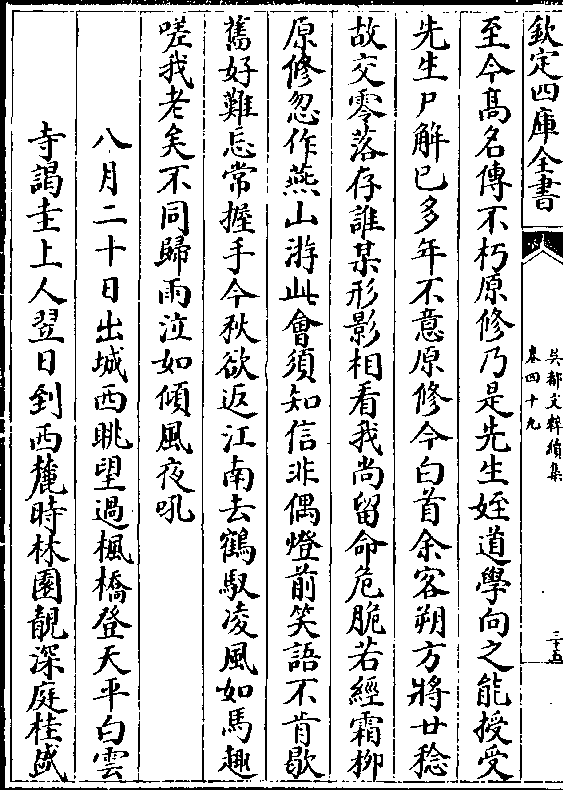 欽定四庫全書
吳都文粹續集
卷四十九
三十五
至今髙名傳不朽原修乃是先生姪道學向之能授受
先生尸解已多年不意原修今白首余客朔方將廿稔
故交零落存誰某形影相看我尚留命危脆若經霜柳
原修忽作燕山游此㑹須知信非偶燈前笑語不肯歇
舊好難忘常握手今秋欲返江南去鶴馭凌風如馬趣
嗟我老矣不同歸雨泣如傾風夜吼
八月二十日出城西眺望過楓橋登天平白雲
寺謁圭上人翌日到西麓時林園靚深庭桂盛